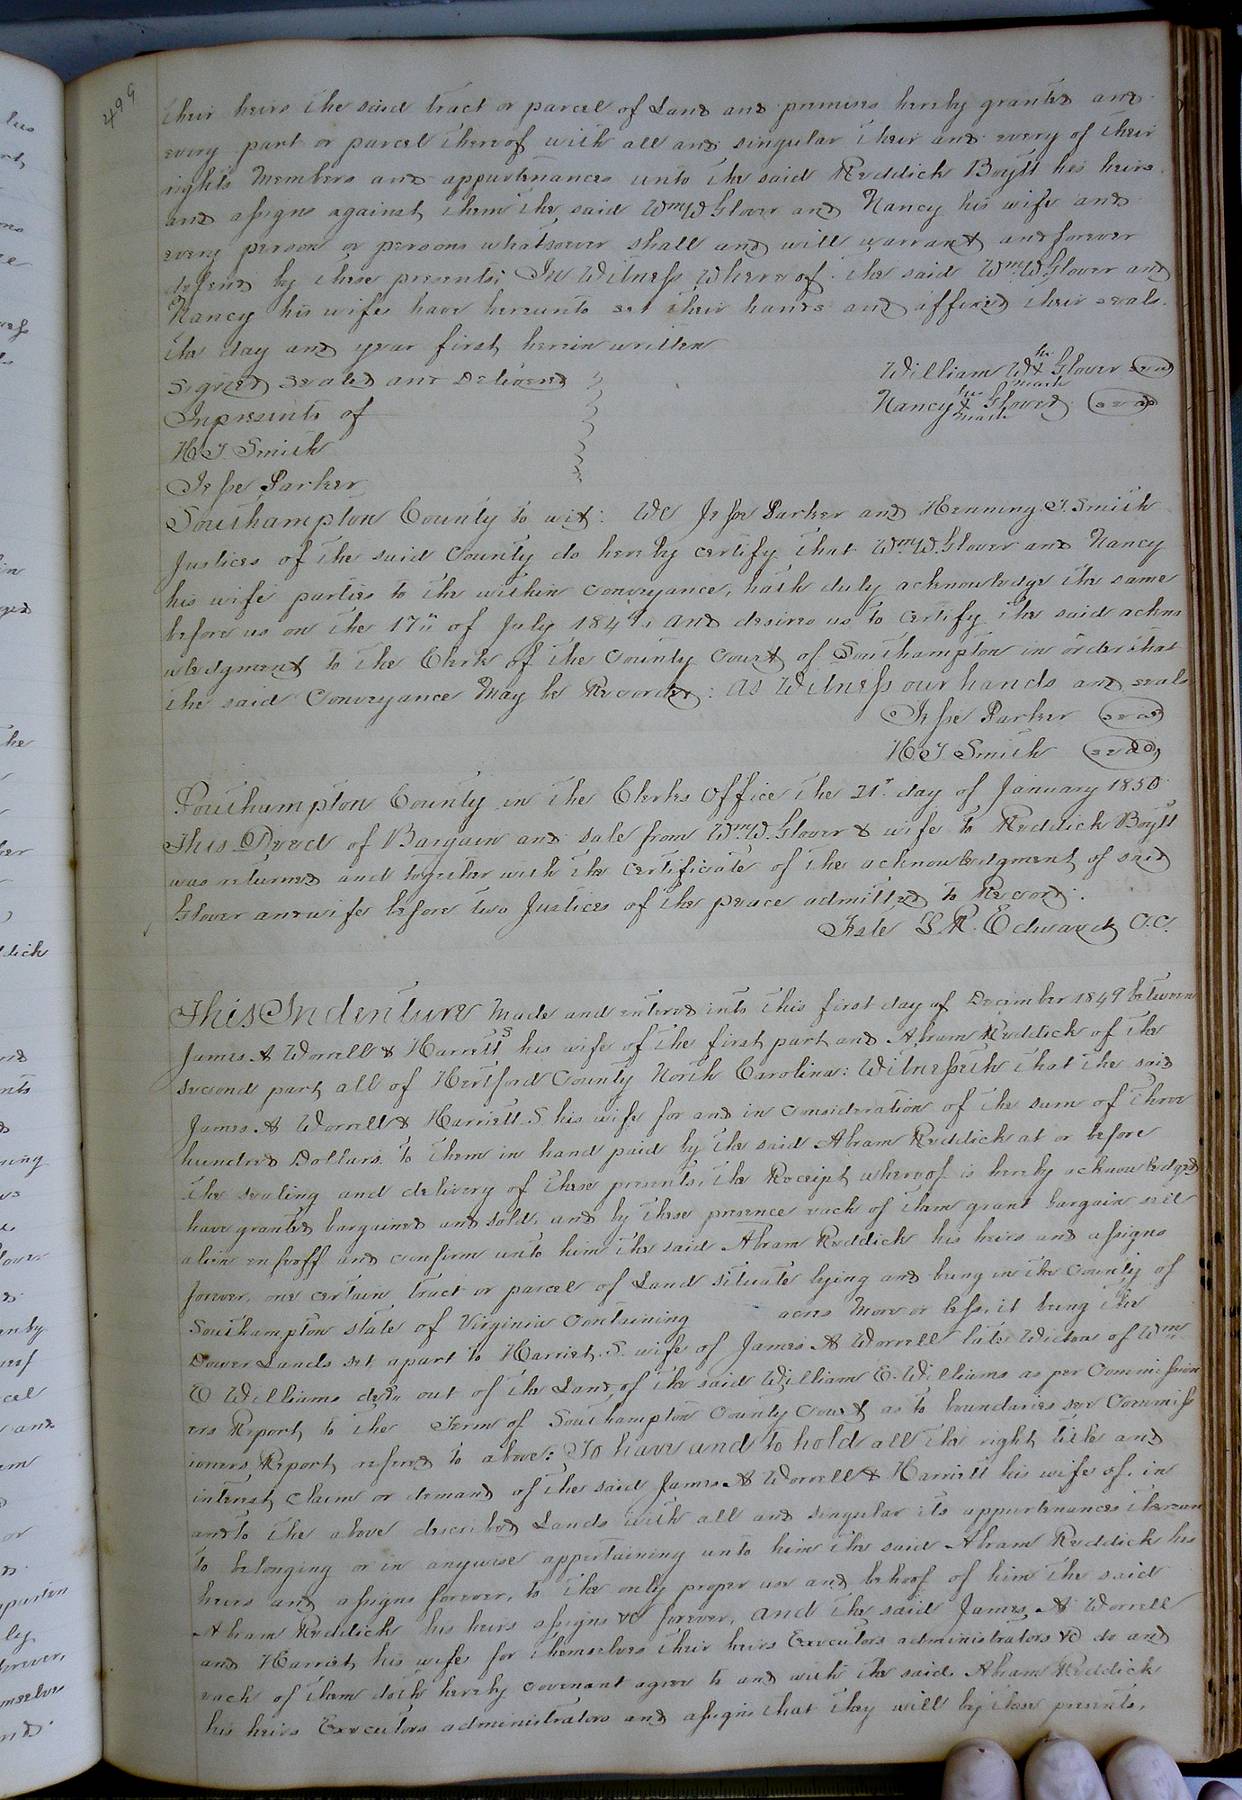 499
their heirs the said tract or parcel of Land and premises hereby granted and
every part or parcel thereof with all and singular their and every of their
rights Members and appurtenances unto the said Reddick Boytt his heirs
and assigns against them the said Wm W Glover and Nancy his wife and
every person or persons whatsoever shall and will warrant and forever
defend by these presents; In Witness Whereof the said Wm W Glover and
Nancy his wife have hereunto set their hands and affixed their seals.
the day and year first herein written
Signed Sealed and Delivered
William W his X mark Glover seal
Inpresents of
Nancy her X mark Glover seal
H T Smith
Jesse Parker
Southampton County to wit: We Jesse Parker and Henning T. Smith
Justices of the said County do hereby certify that Wm W. Glover and Nancy
his wife parties to the within conveyance, hath duly acknowledge the same
before us on the 17" of July and desires us to certify the said ackno
wledgment to the Clerk of the County Court of Southampton in order that
the said Conveyance May be Recorded: As Witness our hands and seals
Jesse Parker seal
H T Smith seal
Southampton County in the Clerks Office the 21st day of January 1850
This Deed of Bargain and sale from Wm W. Glover & wife to Reddick Boytt
was returned and together with the certificate of the acknowledgment of said
Glover and wife before two Justices of the peace admitted to Record.
Teste L R. Edwards C.C.
This Indenture Made and entered into this first day of December 1849 between
James A Worrell & Harriett S his wife of the first part and Abram Reddick of the
second part all of Hertford County North Carolina: Witnesseth that the said
James A Worrell & Harriett S his wife for and in consideration of the sum of three
hundred Dollars to them in hand paid by the said Abram Reddick at or before
the sealing and delivery of these presents, the Receipt whereof is hereby acknowledged
have granted bargained and sold, and by these presence each of them grant bargain sell
alien enfeoff and confirm unto him the said Abram Reddick his heirs and assigns
forever, one certain tract or parcel of Land situate lying and being in the County of
Southampton state of Virginia Containing acres More or less, it being the
Dower Lands set apart to Harriet S. wife of James A Worrell late Widow of Wm
E Williams decd out of the Land, of the said William E. Williams as per Commission
ers Report, to the Term of Southampton County Court as to boundaries see Commiss
ioners Report refered to above: To have and to hold all the right title and
interest, claim or demand of the said James A Worrell & Harriett his wife of, in
and to the above described Lands with all and singular its appurtenances thereun
to belonging or in anywise appertaining unto him the said Abram Reddick his
heirs and assigns forever, to the only proper use and behoof of him the said
Abram Reddick his heirs assigns &c forever, and the said James A Worrell
and Harriet his wife for themselves their heirs Executors administrators &c do and
each of them doth hereby covenant agree to and with the said Abram Reddick
his heirs Executors administrators and assigns that they will by these presents,